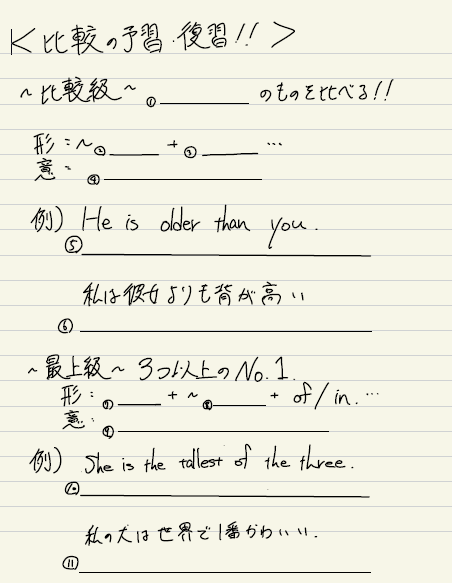 <比較の予習・復習!!>
~比較級~ ① ______ のものを比べる!!
形:~② ____ + ③ ____ …
意: ④ ______
例) He is older than you.
⑤ ______
私は彼女よりも背が高い
⑥ ______
~最上級~ 3つ以上のNo.1.
形: ⑦ ____ + ~⑧ ____ + of/in. …
意: ⑨ ______
例) She is the tallest of the three.
⑩ ______
私の犬は世界で1番かわいい.
⑪ ______